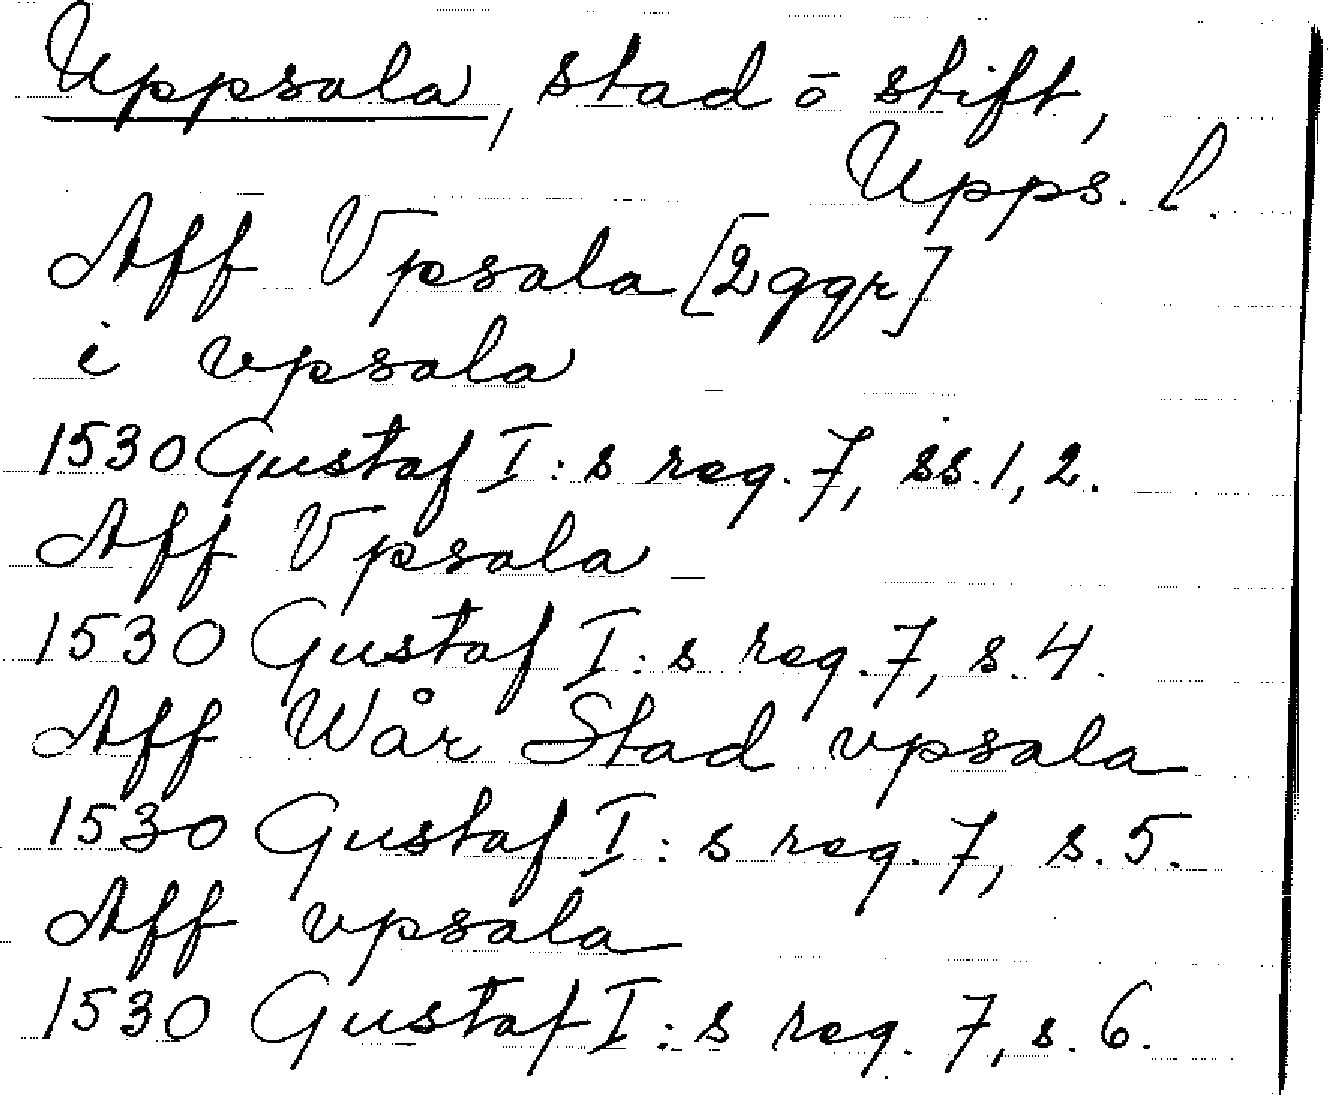 Uppsala, stad o stift,
Upps. l.
Aff Vpsala [2 ggr]
i vpsala
1530 Gustaf I:s reg. 7, ss. 1, 2.
Aff Vpsala
1530 Gustaf I:s reg. 7, s. 4.
Aff Wår Stad vpsala
1530 Gustaf I:s reg. 7, s. 5.
Aff vpsala
1530 Gustaf I:s reg. 7, s. 6.